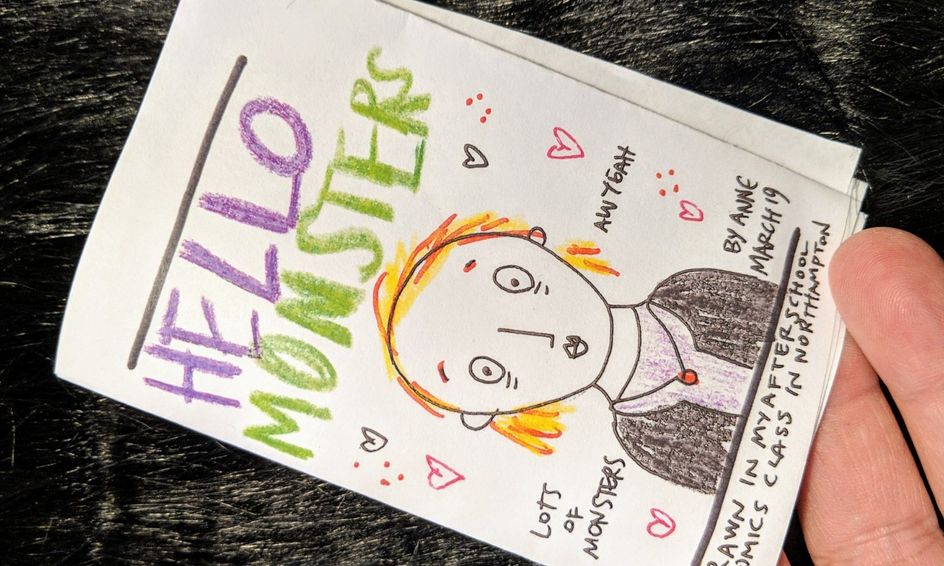 HELLO
MONSTERS
AW YEAH
LOTS
OF
MONSTERS
BY ANNE
MARCH 19
RAWN IN MY AFTERSCHOOL
OMICS CLASS IN NORTHAMPTON